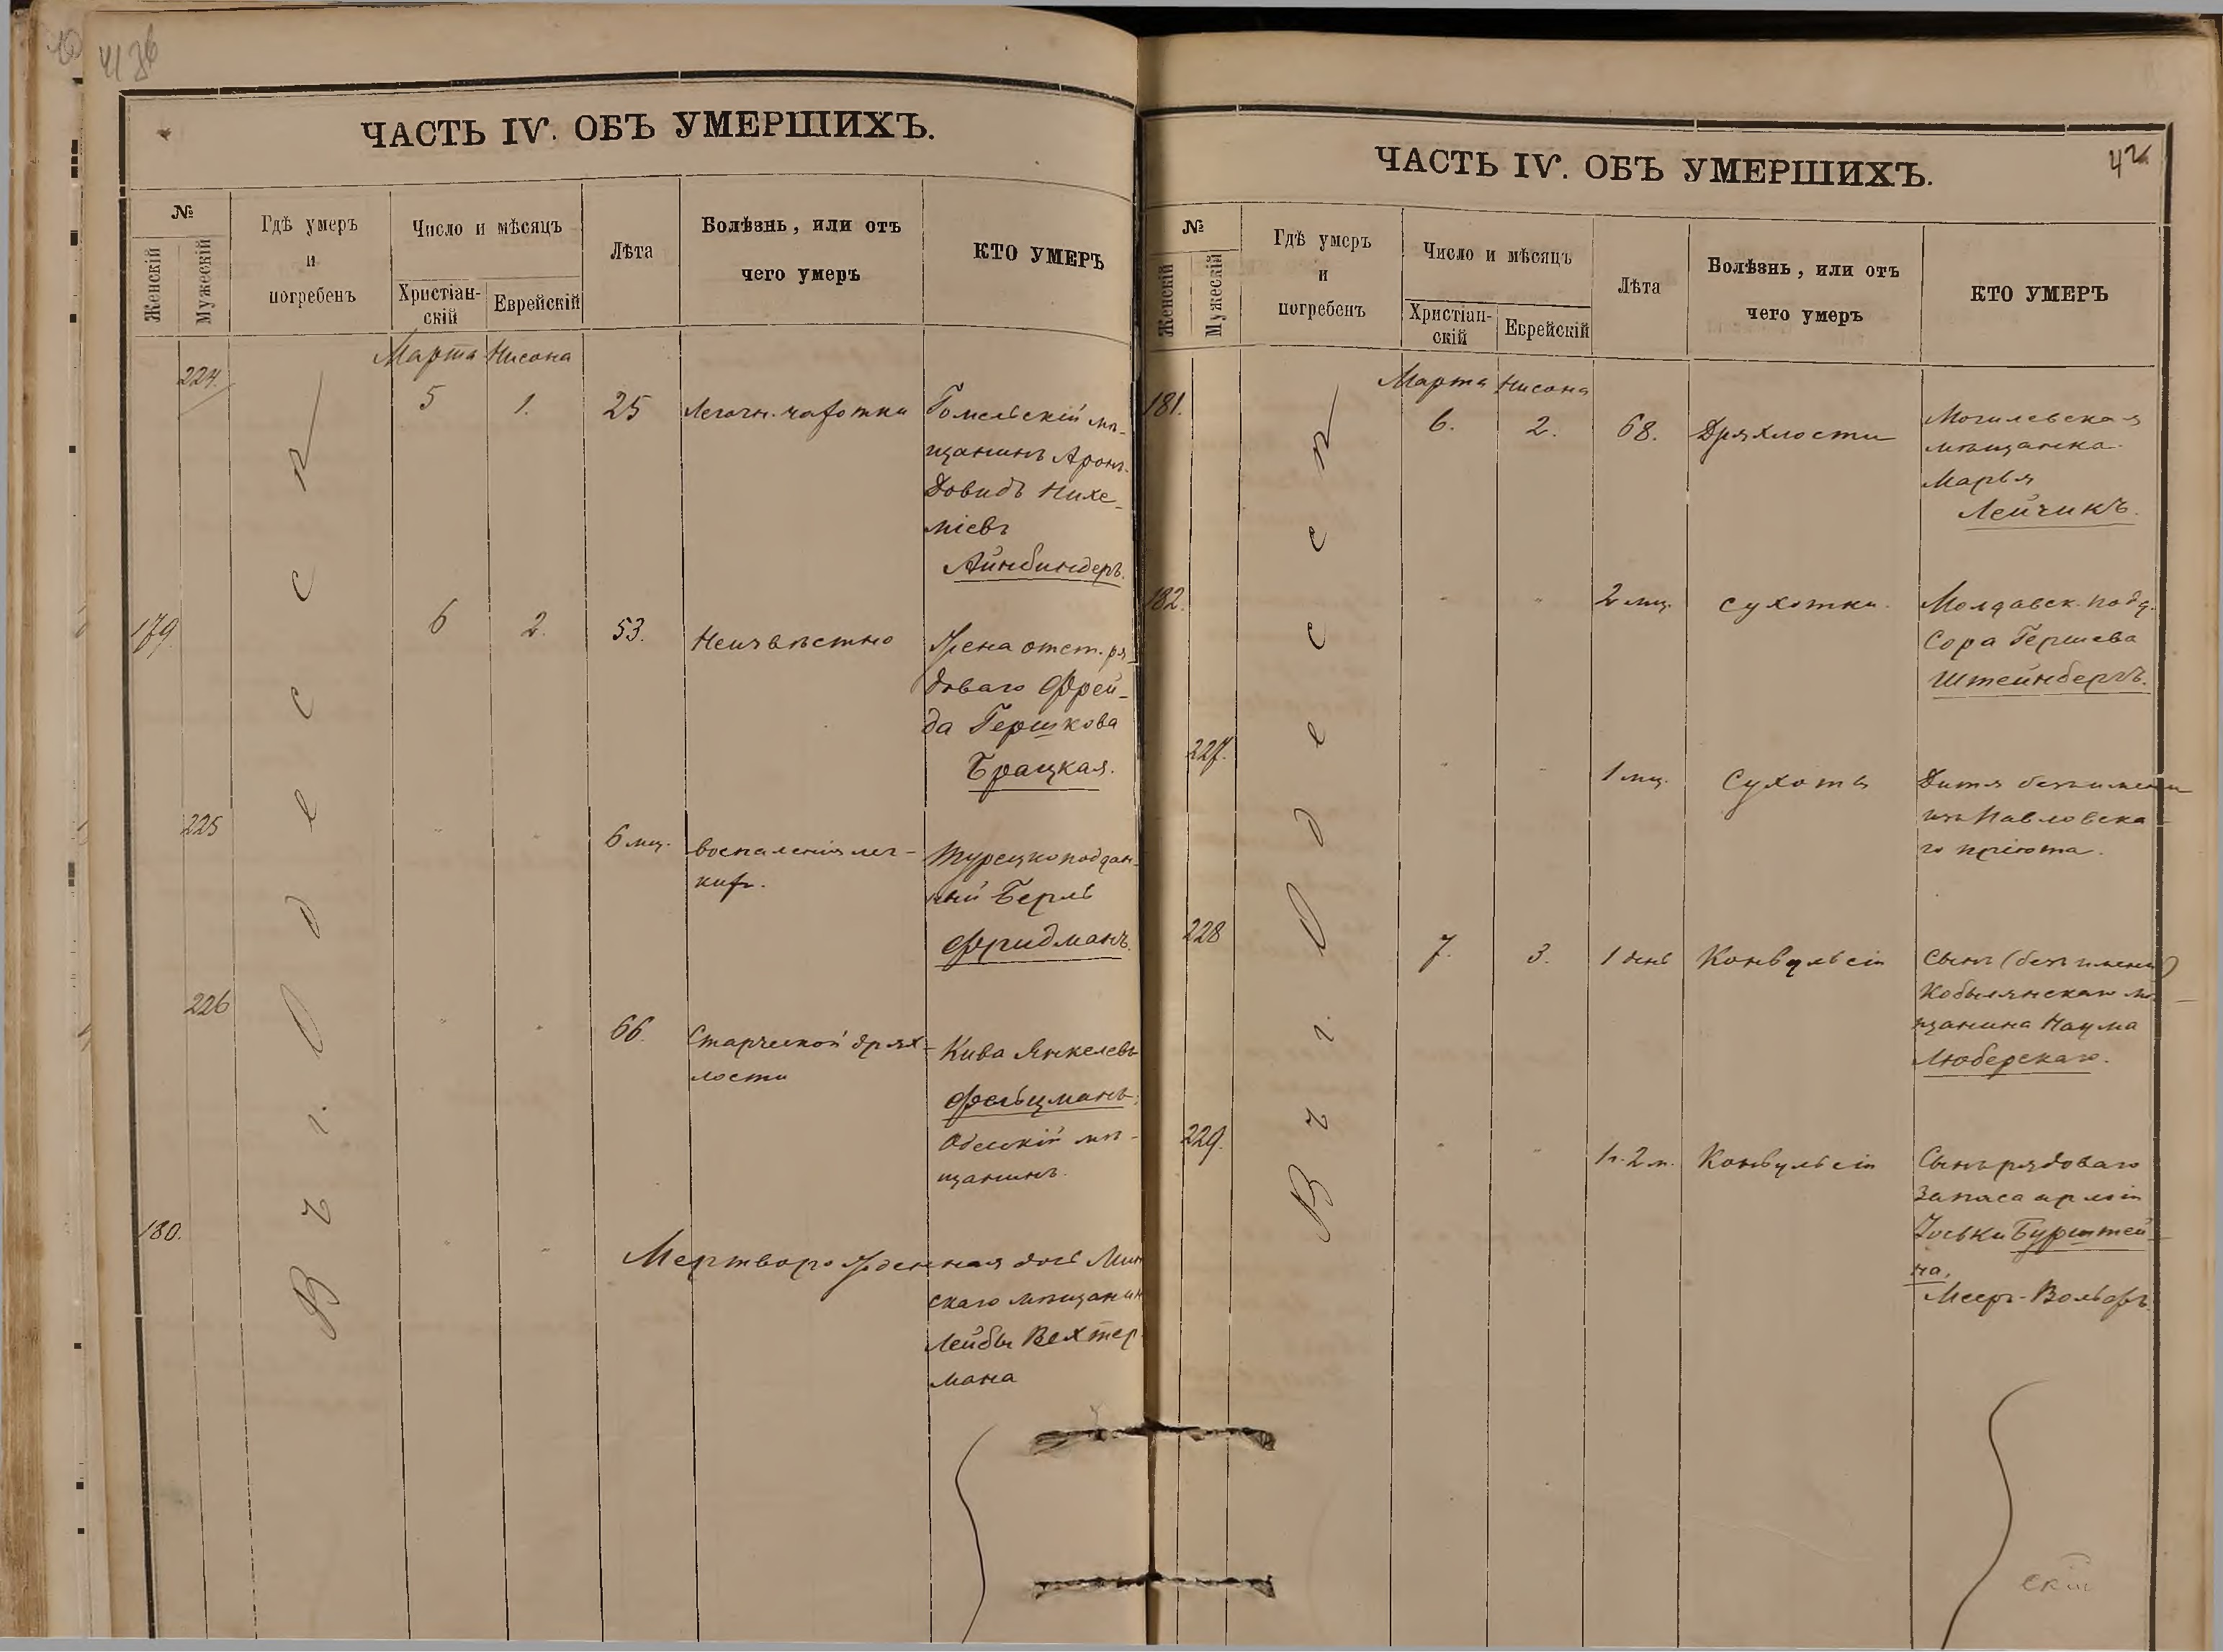 ЧАСТЬ IV. ОБЪ УМЕРШИХЪ.
№
Женскій
Мужескій
Гдѣ умеръ
и
погребенъ
Число и мѣсяцъ
Христіан-
скій
Еврейскій
Лѣта
Болѣзнь, или отъ
чего умеръ
КТО УМЕРЪ
Въ г. Одессѣ
Марта Нисона
224. 5 1. 25 Легочн. чахотки Гомельскій мѣ-
щанинъ Аронъ-
Довидъ Нихе-
міевъ
Айнбиндеръ.
179. 6 2. 53. Неизвѣстно Жена отст. ря-
доваго Фрей-
да Гершкова
Брацкая.
225 " " 6 мц. Воспаленія лег- Турецкоподдан-
кихъ. ный Берль
Фридманъ.
226 " " 66. Старческой дрях- Кива Янкелевъ
лости Фельцманъ,
Одесскій мѣ-
щанинъ.
180. " " Мертворожденная дочь Мин
скаго мѣщанин
Лейбы Вехтер-
мана
ЧАСТЬ IV. ОБЪ УМЕРШИХЪ.
42
№
Женскій
Мужескій
Гдѣ умеръ
и
погребенъ
Число и мѣсяцъ
Христіан-
скій
Еврейскій
Лѣта
Болѣзнь, или отъ
чего умеръ
КТО УМЕРЪ
Въ г. Одессѣ
Марта Нисона
181. 6. 2. 68. Дряхлости Могилевская
мѣщанка
Марья
Лейчикъ.
182. " " 2 мц. Сухотки. Молдавск. подд.
Сора Гершева
Штейнбергъ.
227. " " 1 мц. Сухоты Дитя безъ имени
изъ Павловска-
го пріюта.
228 7. 3. 1 день Конвульсіи Сынъ (безъ имени)
Кобылянскаго мѣ-
щанина Наума
Люберскаго.
229. " " 1 г. 2 м. Конвульсіи Сынъ рядоваго
запаса арміи
Іоськи Бурштей-
на,
Мееръ-Вольфъ.